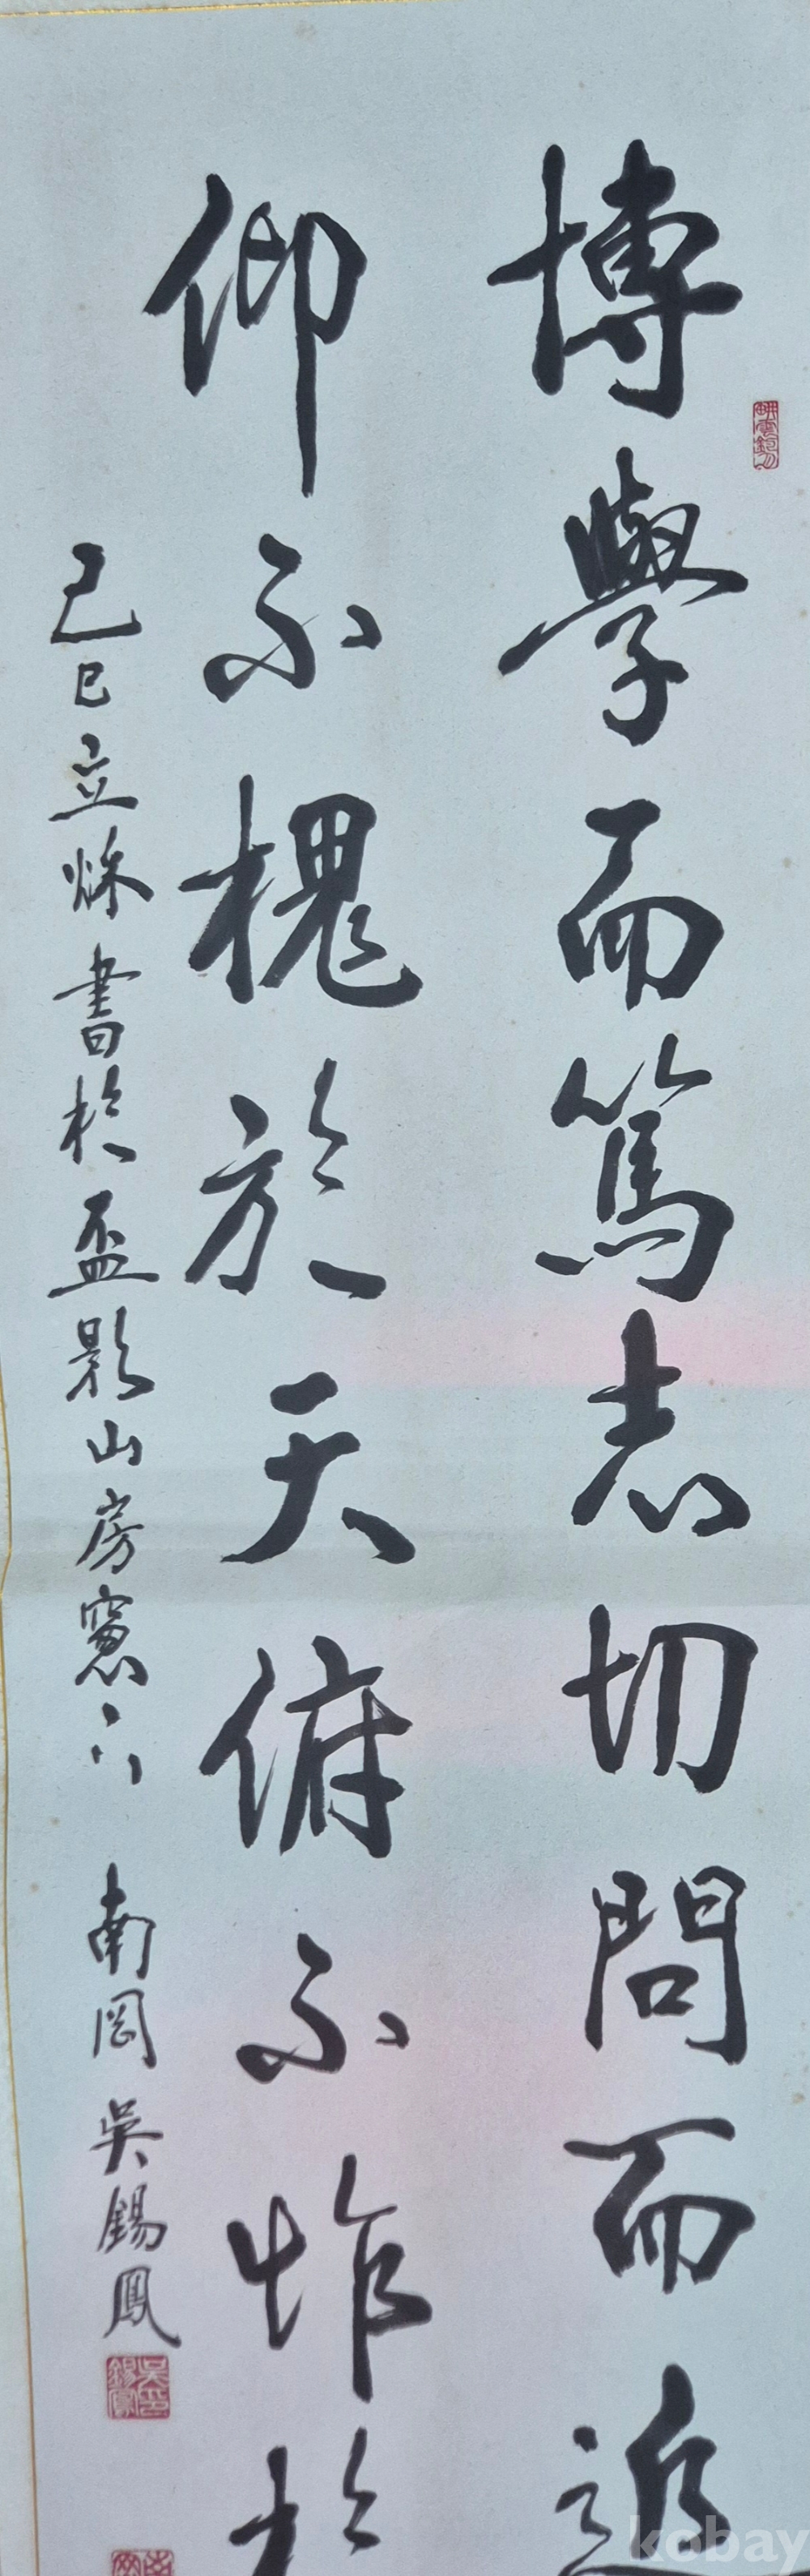 博學而篤志切問而近
仰不槐於天俯不怍於
己巳立秌書於盃影山房窻下 南岡 吳錫鳳
吳錫鳳印
kobay